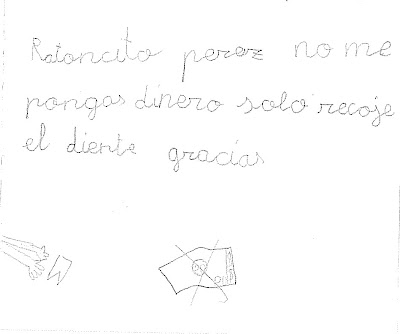 Ratoncito perez no me
pongas dinero solo recoje
el diente gracias